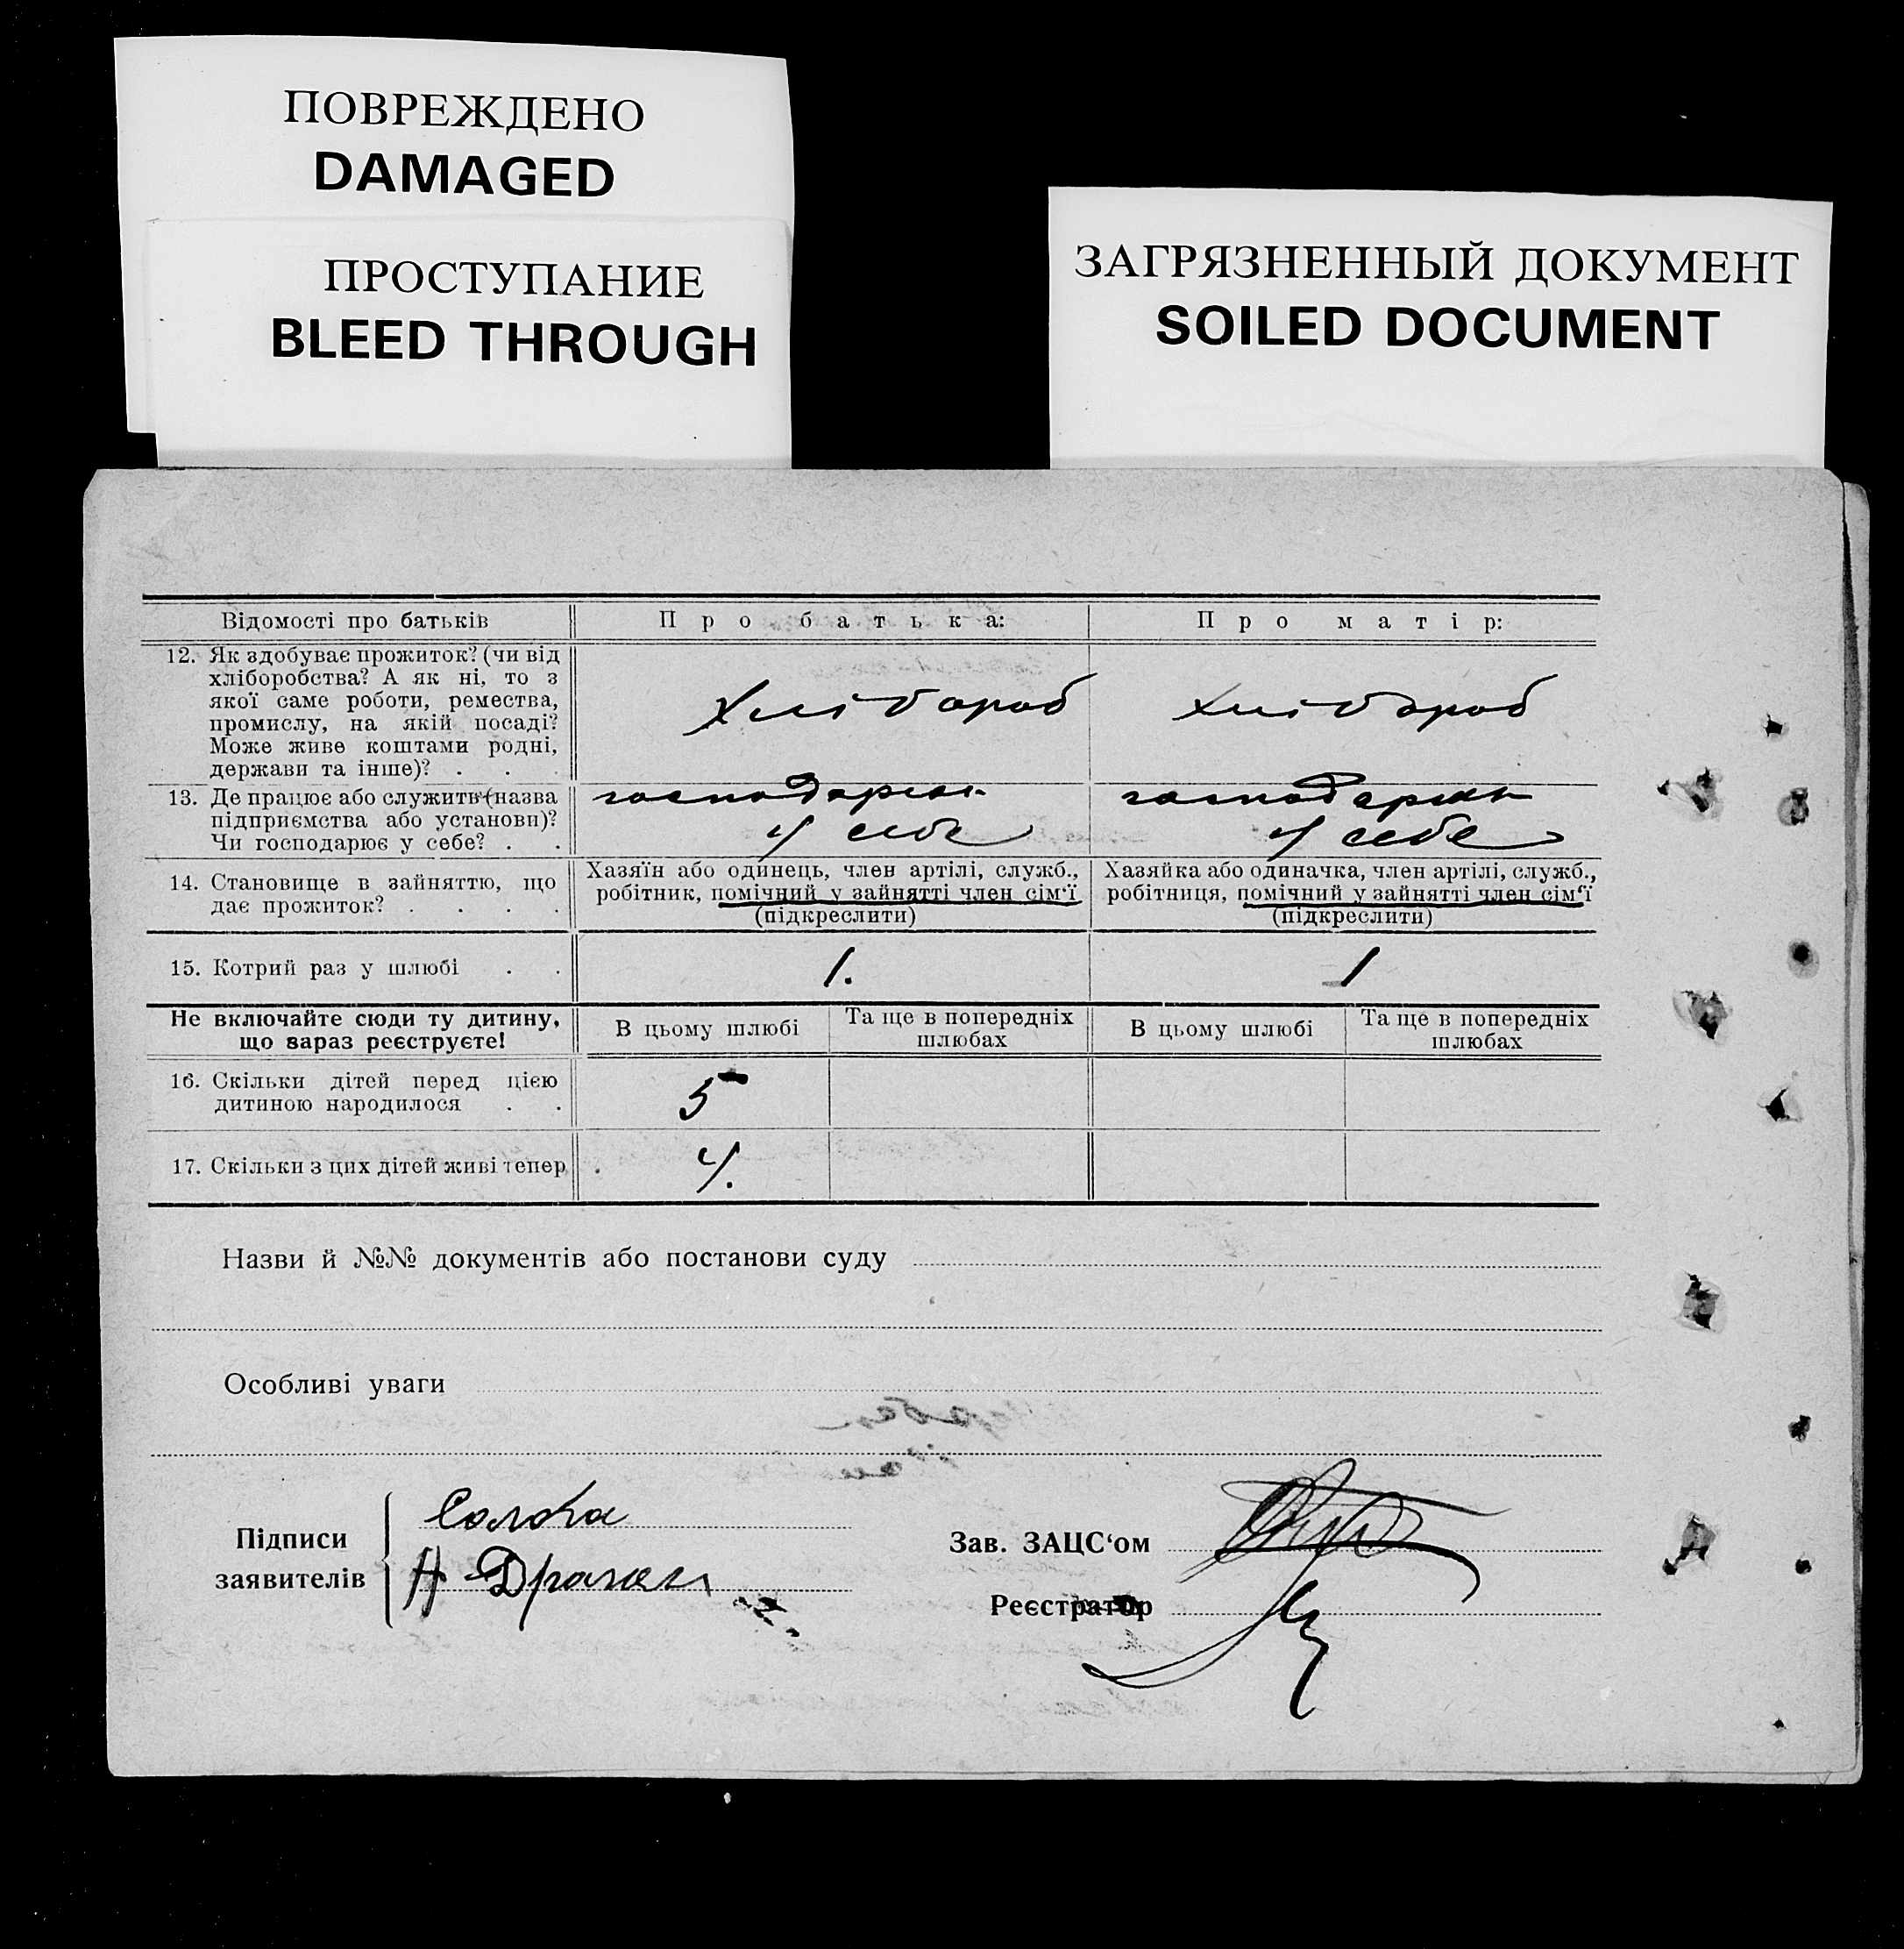 ПОВРЕЖДЕНО
DAMAGED
ПРОСТУПАНИЕ
BLEED THROUGH
ЗАГРЯЗНЕННЫЙ ДОКУМЕНТ
SOILED DOCUMENT
Відомості про батьків Про батька: Про матір:
12. Як здобуває прожиток? (чи від
хліборобства? А як ні, то з
якої саме роботи, ремества,
промислу, на якій посаді?
Може живе коштами родні,
держави та інше)? . . .
Хлібороб Хлібороб
13. Де працює або служить (назва
підприємства або установи)?
Чи господарює у себе? . .
господарює
у себе
господарює
у себе
14. Становище в зайняттю, що
дає прожиток? . . . .
Хазяїн або одинець, член артілі, служб.,
робітник, помічний у зайнятті член сім'ї
(підкреслити)
Хазяйка або одиначка, член артілі, служб.,
робітниця, помічний у зайнятті член сім'ї
(підкреслити)
15. Котрий раз у шлюбі . . 1. 1
Не включайте сюди ту дитину,
що зараз реєструєте!
В цьому шлюбі
Та ще в попередніх
шлюбах
В цьому шлюбі
Та ще в попередніх
шлюбах
16. Скільки дітей перед цією
дитиною народилося . .
5
17. Скільки з цих дітей живі тепер . 4.
Назви й №№ документів або постанови суду
Особливі уваги
Підписи
заявителів
Зав. ЗАЦС‘ом
Реєстратор